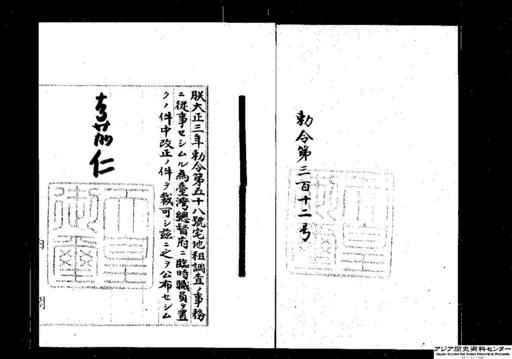 勅令第三百十二号
朕大正三年勅令第五十八號宅地租調査ノ事務
ニ從事セシムル為臺灣總督府ニ臨時職員ヲ置
クノ件中改正ノ件ヲ裁可シ茲ニ之ヲ公布セシム
嘉仁
天皇
御璽
内閣
アジア歴史資料センター
Japan Center for Asian Historical Records